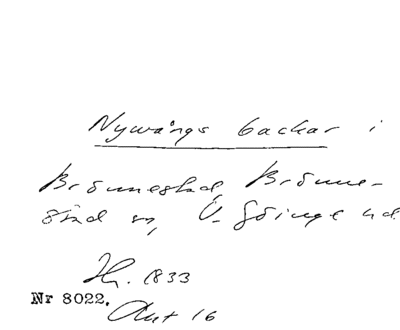 Nywångs backar i
Brönnestad, Brönne-
stad sn, V. Göinge hd
H. 1833
Nr 8022.
Akt 16